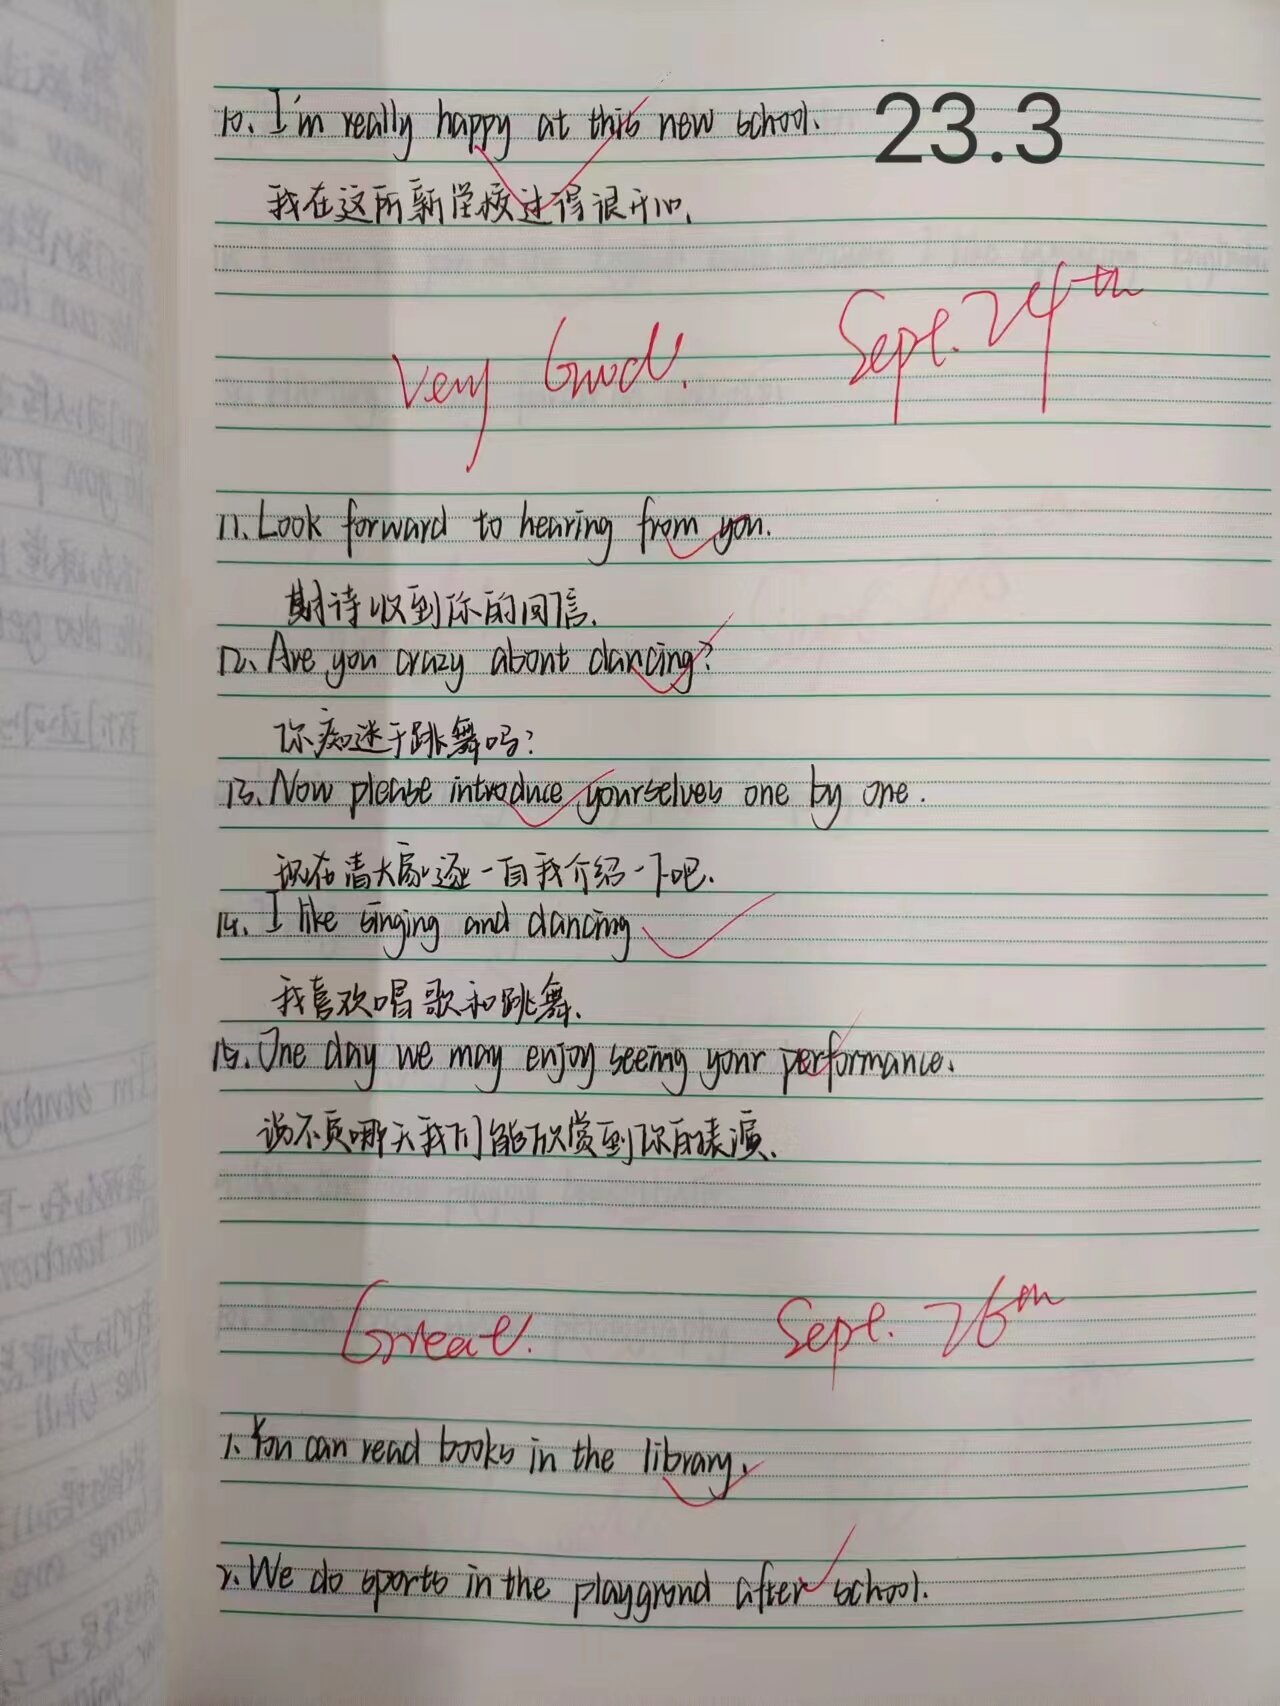 10. I'm really happy at this new school. 23.3
我在这所新学校过得很开心.
Very Good! Sept. 24th
11. Look forward to hearing from you.
期待收到你的回信.
12. Are you crazy about dancing?
你痴迷于跳舞吗?
13. Now please introduce yourselves one by one.
现在请大家逐一自我介绍一下吧.
14. I like singing and dancing
我喜欢唱歌和跳舞.
15. One day we may enjoy seeing your performance.
说不定哪天我们能欣赏到你的表演.
Great! Sept. 26th
1. You can read books in the library.
2. We do sports in the playgrond after school.